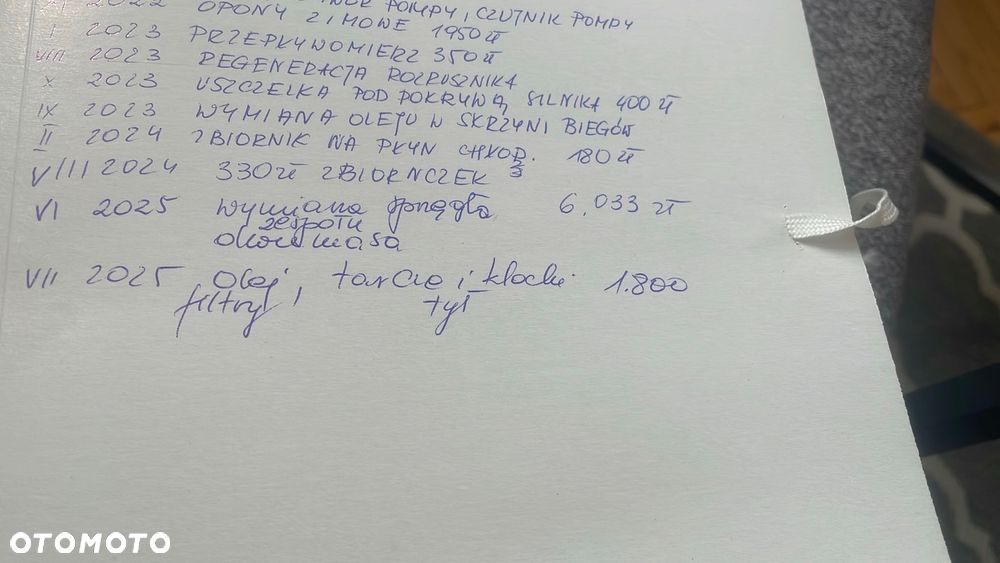 XI 2022 POMPY, CZUJNIK POMPY
OPONY ZIMOWE 1950 zł
I 2023 PRZEPŁYWOMIERZ 350 zł
VIII 2023 REGENERACJA ROZRUSZNIKA
X 2023 USZCZELKA POD POKRYWĄ SILNIKA 400 zł
IX 2023 WYMIANA OLEJU W SKRZYNI BIEGÓW
II 2024 ZBIORNIK NA PŁYN CHŁOD. 180 zł
VIII 2024 330 zł ZBIORNCZEK 3
VI 2025 wymiana sprzęgła 6.033 zł
zespołu
dwumasa
VII 2025 Olej, tarcze i klocki 1.800
filtry, tył
OTOMOTO